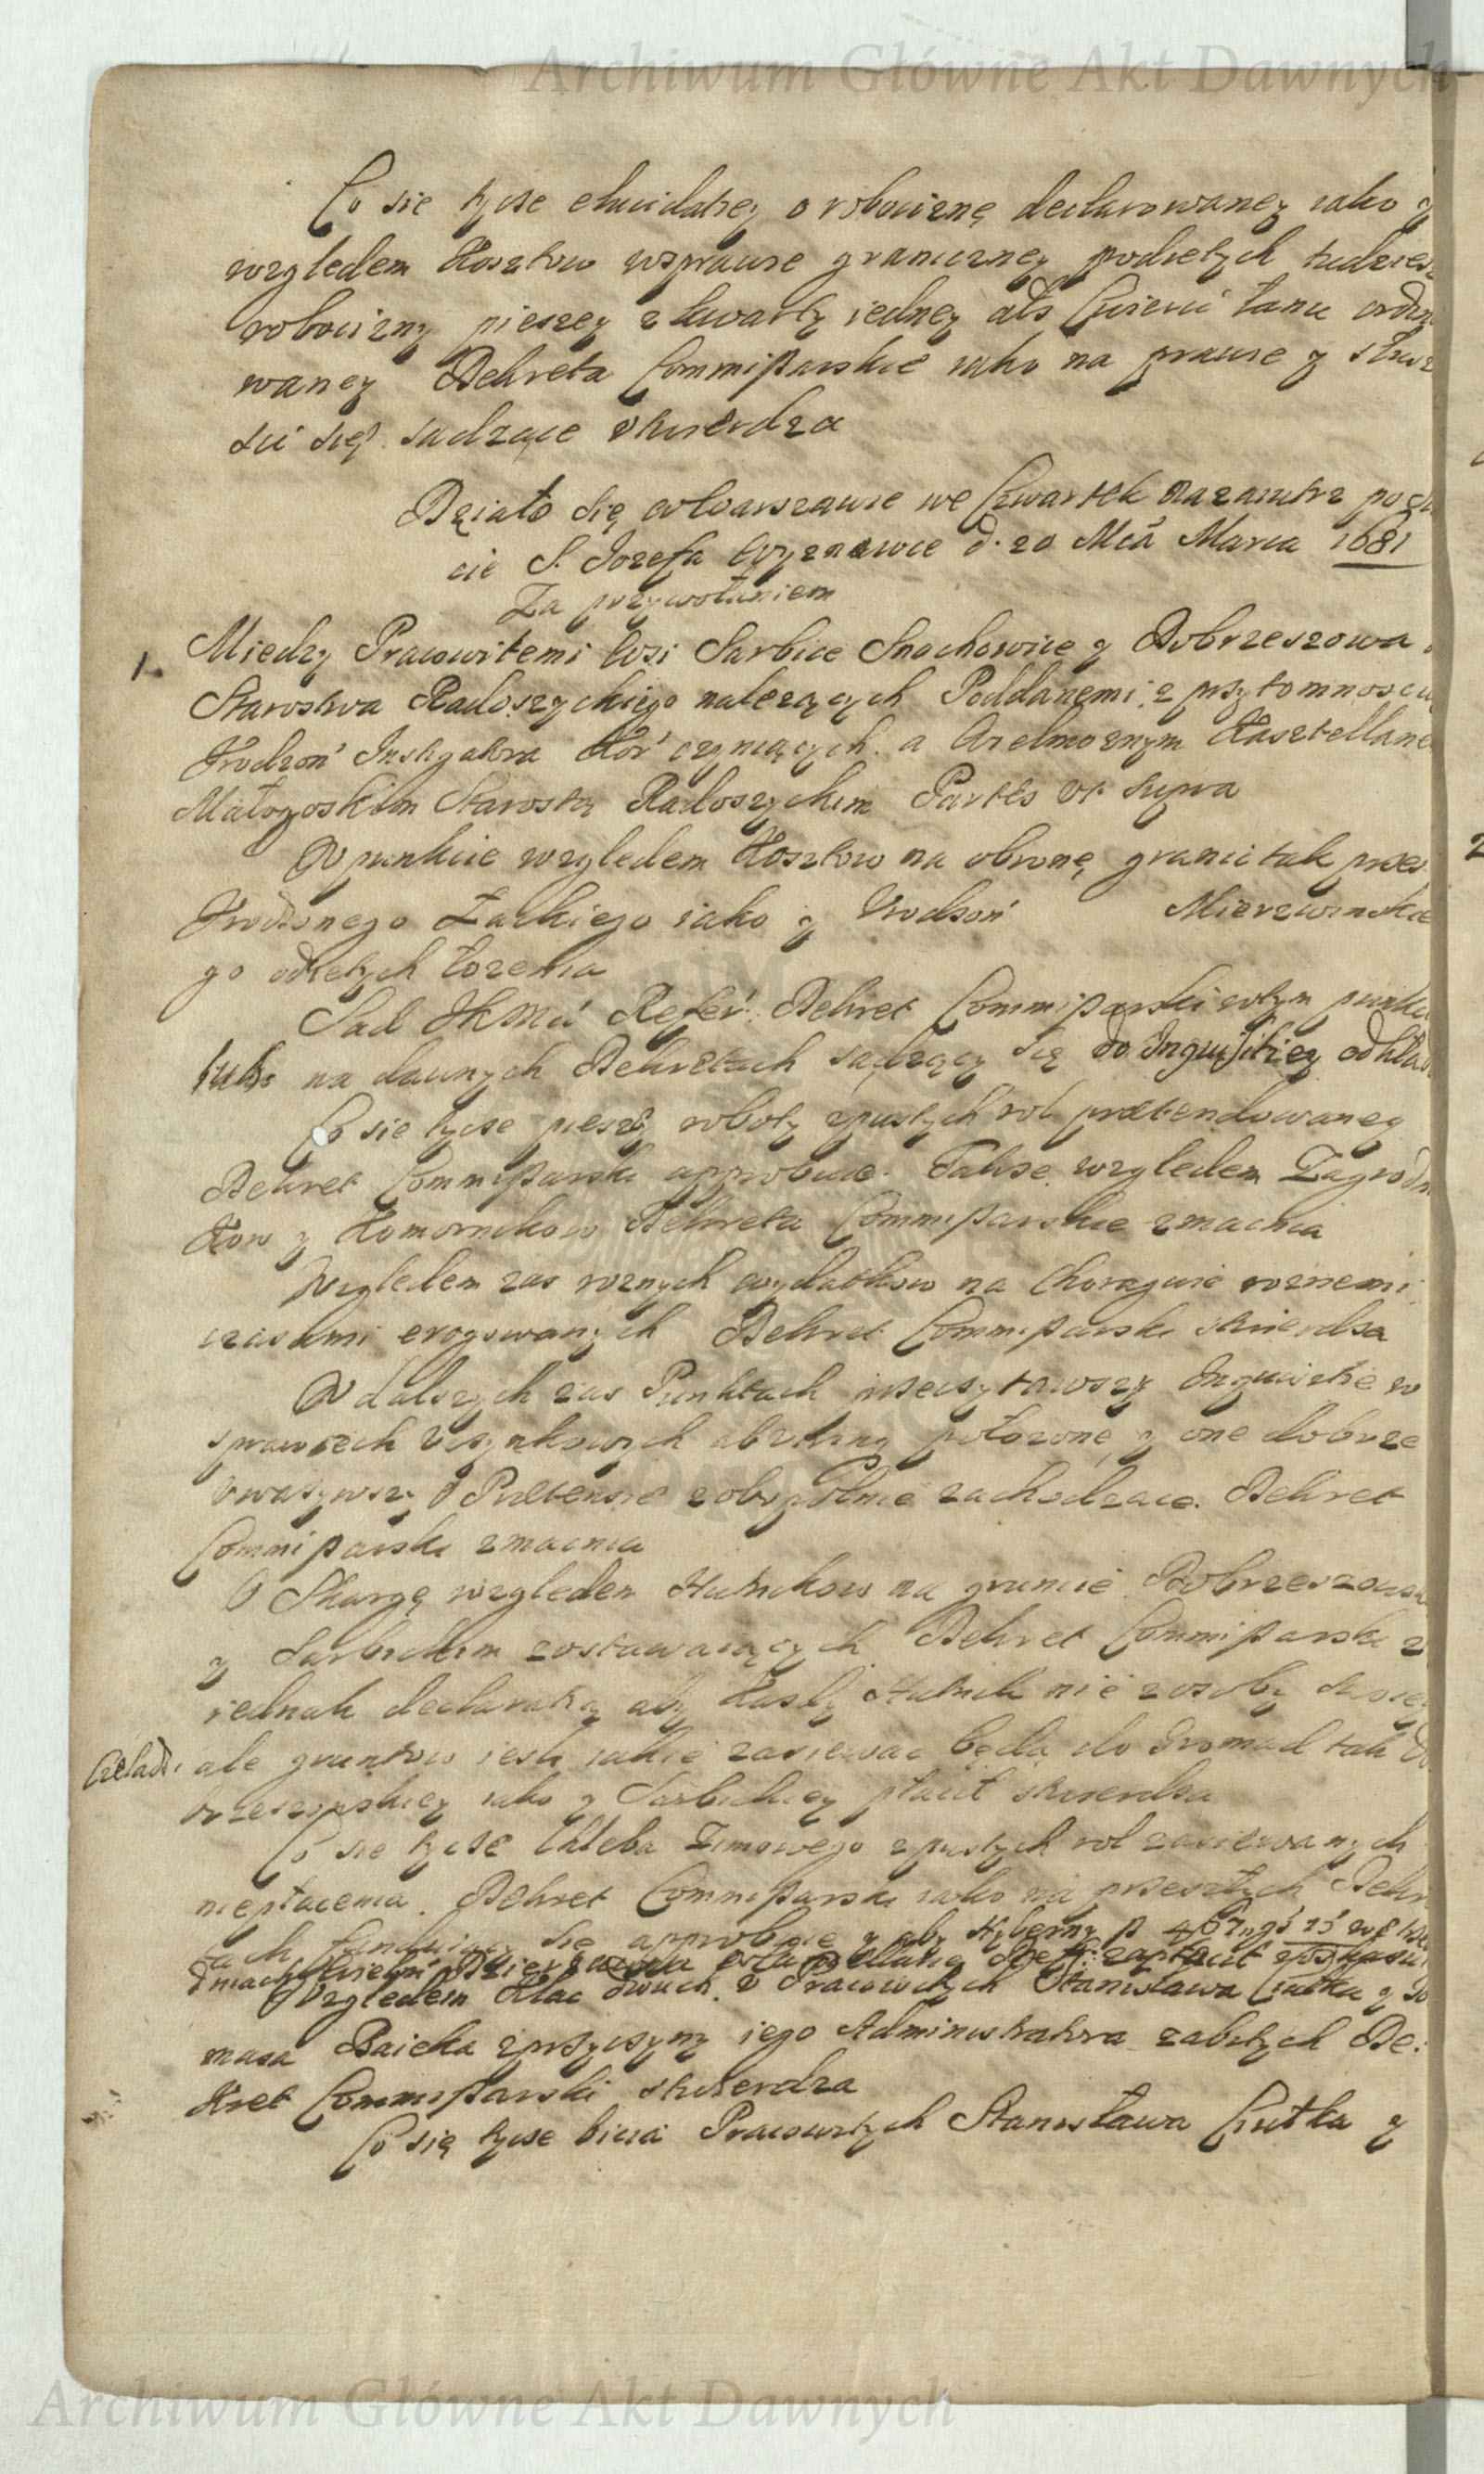 Archiwum Główne Akt Dawnych
Co sie tycse elucidatiey o robociznę declarowaney iako y
względem Kosztow wsprawie graniczney podietych tudziesz
robocizny pieszey z kwarty iedney als Cwierci łanu ordyn
waney Dekreta Commissarskie iako na prawie y słusz
sci się sadzące stwierdza
Działo się w Warszawie we Czwartek nazaiutrz po
cie S. Jozefa Wyznawce d. 20 Mca Marca 1681
Za przywołaniem
1. Miedzy Pracowitemi Wsi Sarbice Snochowice y Dobrzeszowa
Starostwa Radoszyckiego należących Poddanemi, z przytomnoscią
Urodzoń Instygatora Kor czyniących. a Wielmoznym Kasztellanem
Małogoskim Starostą Radoszyckim Partes ut supra
W punkcie względem Kosztow na obronę granic tak przes
Urodzonego Zackiego iako y Urodzoń Mierzwinskie
go odietych łozenia
Sad JKMci Refer. Dekret Commissarski wtym punkcie
iako na dawnych Dekretach sadzący się do Inquisitiey odkłada
Co sie tycse pieszey roboty zpustych rol praetendowaney
Dekret Commissarski approbuie. Takse względem Zagrodni
kow y Komornikow Dekreta Commissarskie zmacnia
Względem zas roznych wydatkow na Choragwie roznemi
czasami erogowanych Dekret Commissarski stwierdsa
W dalszych zas Punktach przeczytawszy Inquisitie w
sprawiech uczynkowych ab utring położone y one dobrze
uwazywszy o Praetensie zobopolnie zachodzące. Dekret
Commissarski zmacnia
O Skargę względem Hutnikow na gruncie Dobrzeszowsk
y Sarbickim zostawaiących Dekret Commissarski z
iednak declaratią aby Kasdy Hutnik nie zosoby swoiey
Czelad. ale gruntow iesli iakie zasiewac będą do Gromad tak Do
brzeszowskiey iako y Sarbickiey płacił stwierdsa
Co sie tycse Chleba Zimowego zpustych rol zasiewanych
niepłacenia. Dekret Commissarski iako na przeszłych Dekre
tach funduiący się approbuie y aby Hyberny
Względem Klac dwuch. U Pracowitych Stanisława Ciutka y To
masa Baicka zprzyczyny iego Administratora zabitych De:
kret Commissarski stwierdza
Co się tycse bicia Pracowitych Stanisława Ciutka y
Archiwum Główne Akt Dawnych